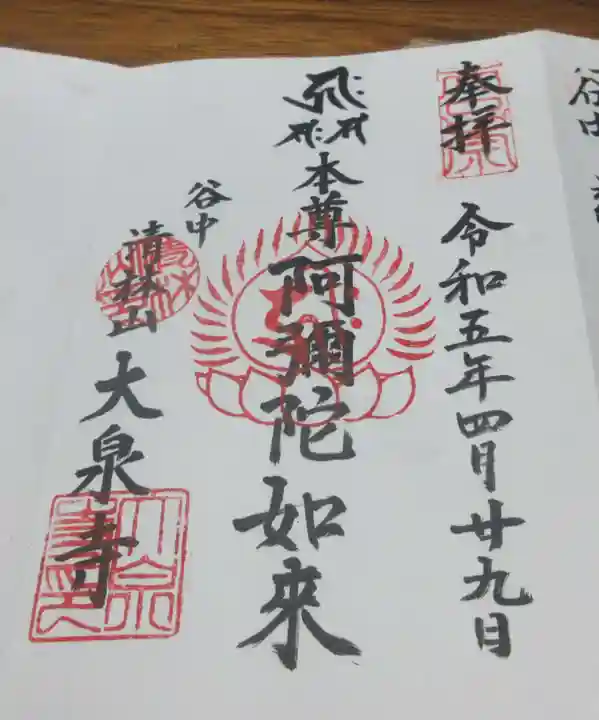 奉拝
令和五年四月廿九日
本尊阿彌陀如来
谷中
清林山
大泉寺
谷中